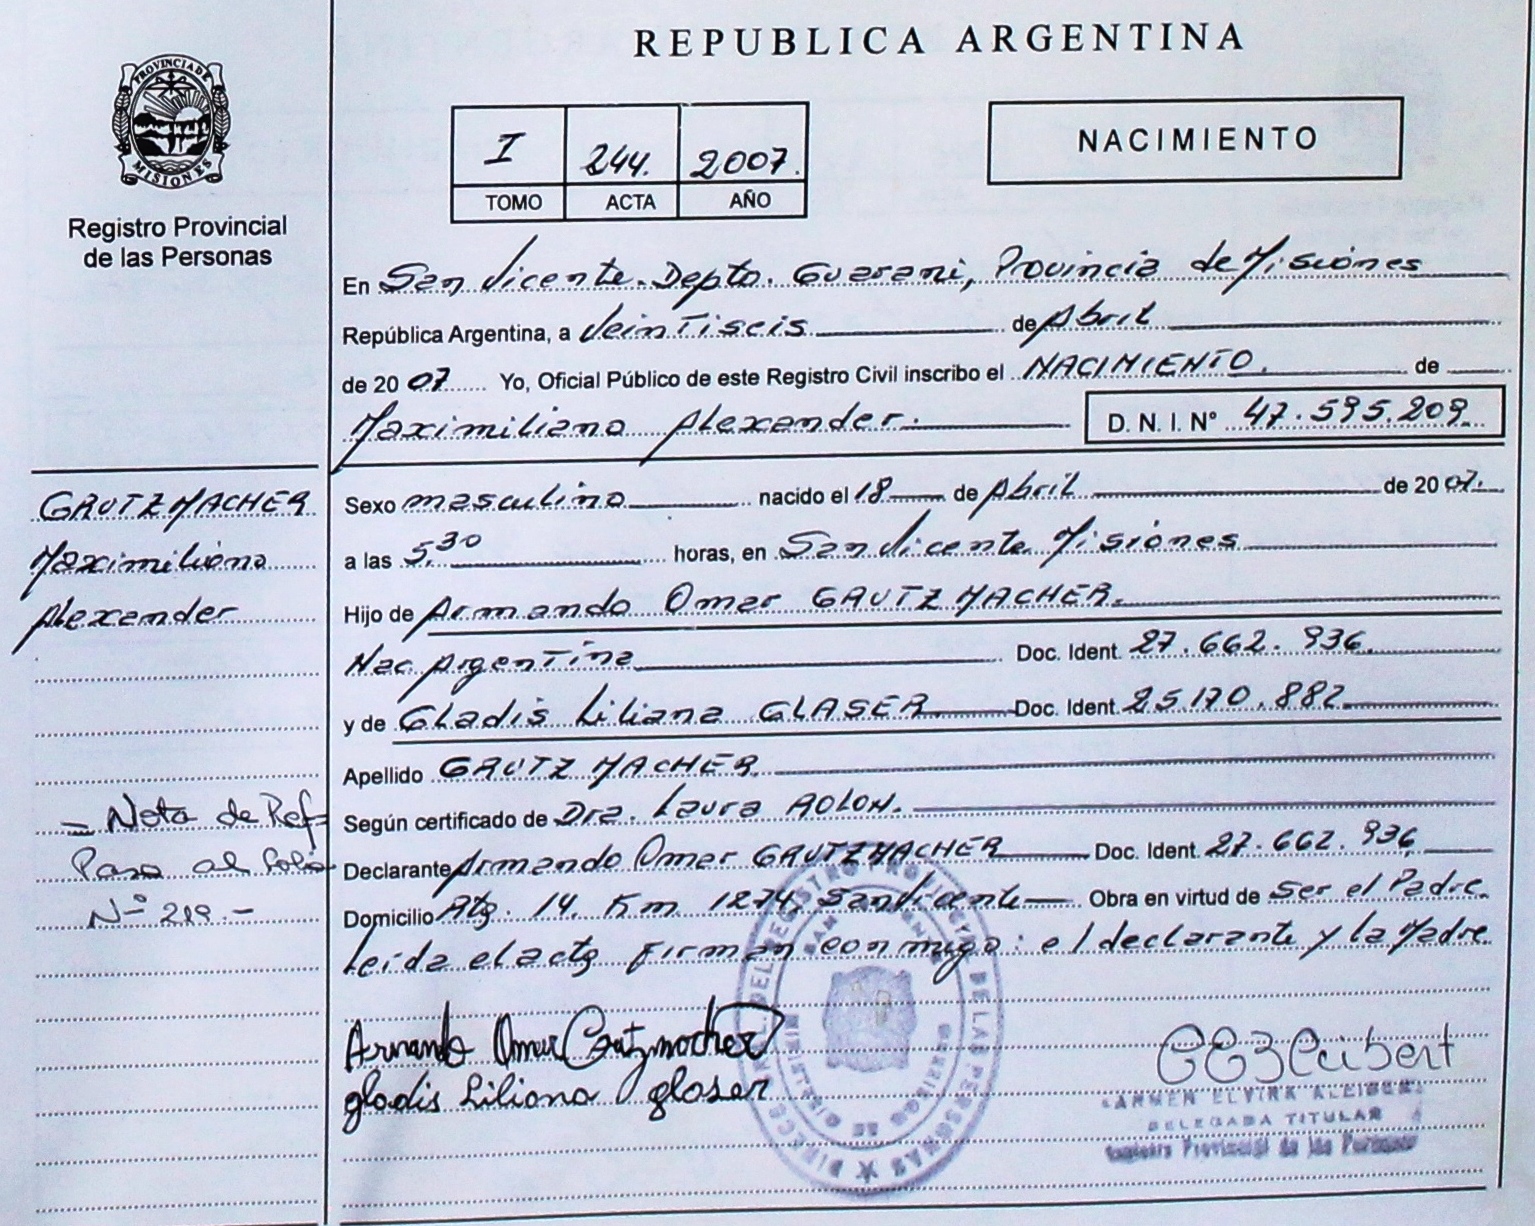 PROVINCIA DE
MISIONES
Registro Provincial
de las Personas
REPUBLICA ARGENTINA
I 244. 2007.
TOMO ACTA AÑO
NACIMIENTO
En San Vicente. Depto. Guarani, Provincia de Misiones
República Argentina, a Veintiseis de Abril
de 20 07 Yo, Oficial Público de este Registro Civil inscribo el NACIMIENTO. de
Maximiliano Alexander. D. N. I. Nº 47.595.209.
GRUTZMACHER
Maximiliano
Alexander
Sexo masculino nacido el 18 de Abril de 20 07.
a las 5,30 horas, en San Vicente Misiones
Hijo de Armando Omar GRUTZMACHER.
Nac. Argentina Doc. Ident. 27.662.936.
y de Gladis Liliana GLASER Doc. Ident. 25.170.882.
Apellido GRUTZMACHER.
Según certificado de Dra. Laura ROLON.
Declarante Armando Omar GRUTZMACHER Doc. Ident. 27.662.936
Domicilio Rta. 14. Km 1274, San Vicente Obra en virtud de Ser el Padre.
Leída el acta firman conmigo: el declarante y la Madre
- Nota de Ref=
Pasa al folio
Nº 219.-
Armando Omar Grutzmacher
gladis Liliana glaser
DELEGADA TITULAR
Registro Provincial de las Personas